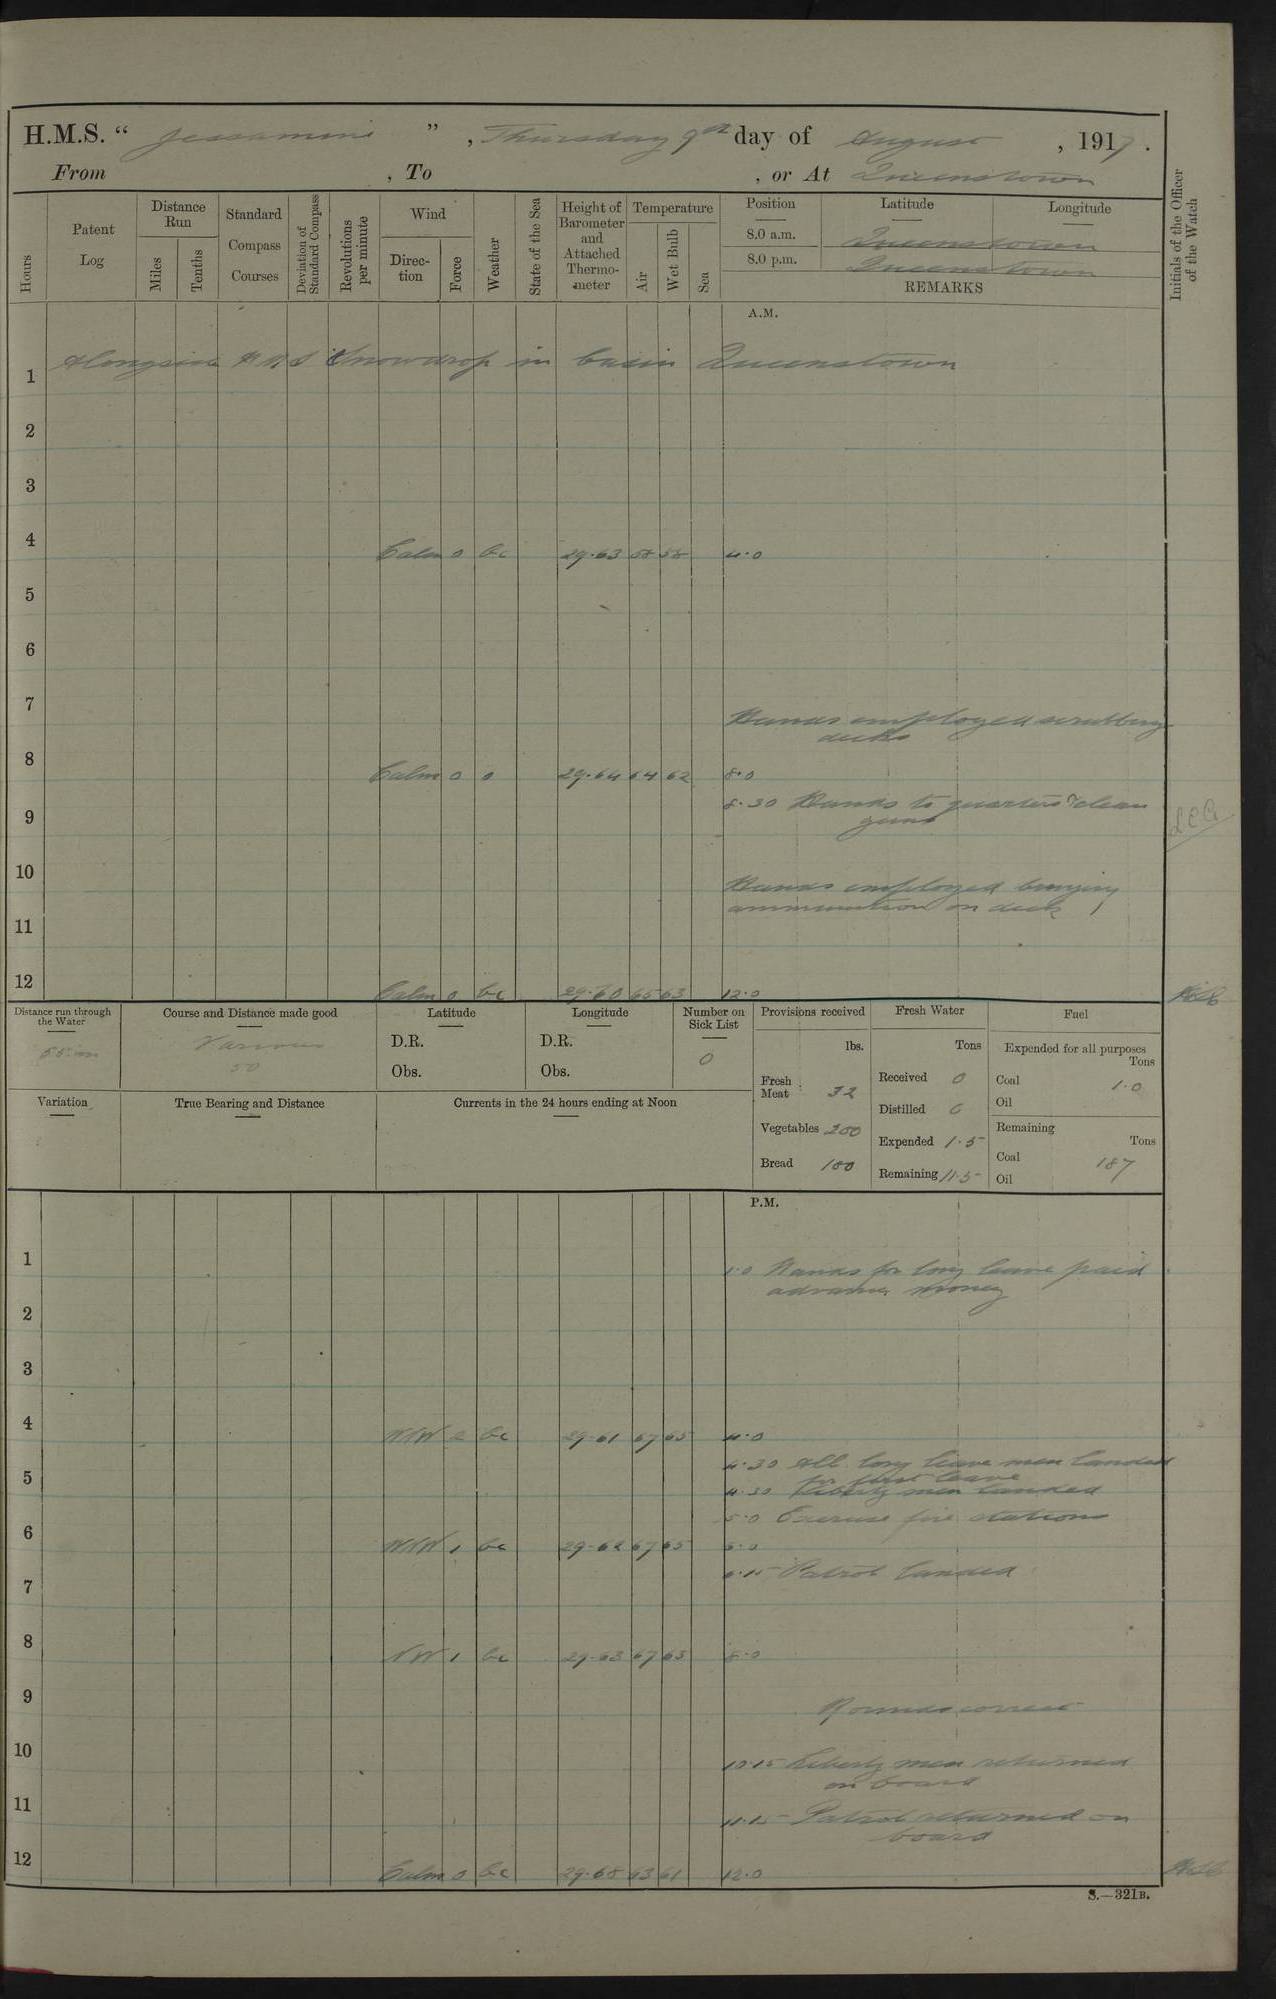 H.M.S. “ Jessamine ” , Thursday 9th day of August , 1917 .
From , To , or At Queenstown
Hours
Patent Log
Distance Run
Miles
Tenths
Standard Compass Courses
Deviation of Standard Compass
Revolutions per minute
Wind
Direc-tion
Force
Weather
State of the Sea
Height of Barometer and Attached Thermo-meter
Temperature
Air
Wet Bulb
Sea
Position Latitude Longitude
8.0 a.m. Queenstown
8.0 p.m. Queenstown
REMARKS
Initials of the Officer of the Watch
A.M.
1 Alongside H M S Snowdrop in basin Queenstown
2
3
4 Calm 0 bc 29.63 58 58 4.0
5
6
7
Hands employed scrubbing
decks
8 Calm 0 0 29.64 64 62 8.0
8.30 Hands to quarters & clean
guns
9
10
Hands employed bringing
ammunition on deck
11
12 Calm 0 bc 29.60 65 63 12.0
Distance run through the Water
Course and Distance made good
Various
50
Latitude
D.R.
Obs.
Longitude
D.R.
Obs.
Number on Sick List
0
Provisions received
lbs.
Fresh Meat 32
Vegetables 200
Bread 100
Fresh Water
Tons
Received 0
Distilled 0
Expended 1.5
Remaining 11.5
Fuel
Expended for all purposes
Tons
Coal 1.0
Oil
Remaining
Tons
Coal 187
Oil
Variation
True Bearing and Distance
Currents in the 24 hours ending at Noon
P.M.
1
1.0 Hands for long leave paid
advance money
2
3
4 NW 2 bc 29.61 67 65 4.0
4.30 All long leave men landed
for first leave
4.30 Liberty men landed
5
5.0 Exercise fire stations
6 NW 1 bc 29.62 67 65 6.0
6.15 Patrol landed
7
8 NW 1 bc 29.63 67 63 8.0
9
Rounds correct
10
10.15 Liberty men returned
on board
11
11.15 Patrol returned on
board
12 Calm 0 bc 29.68 63 61 12.0
S.—321B.